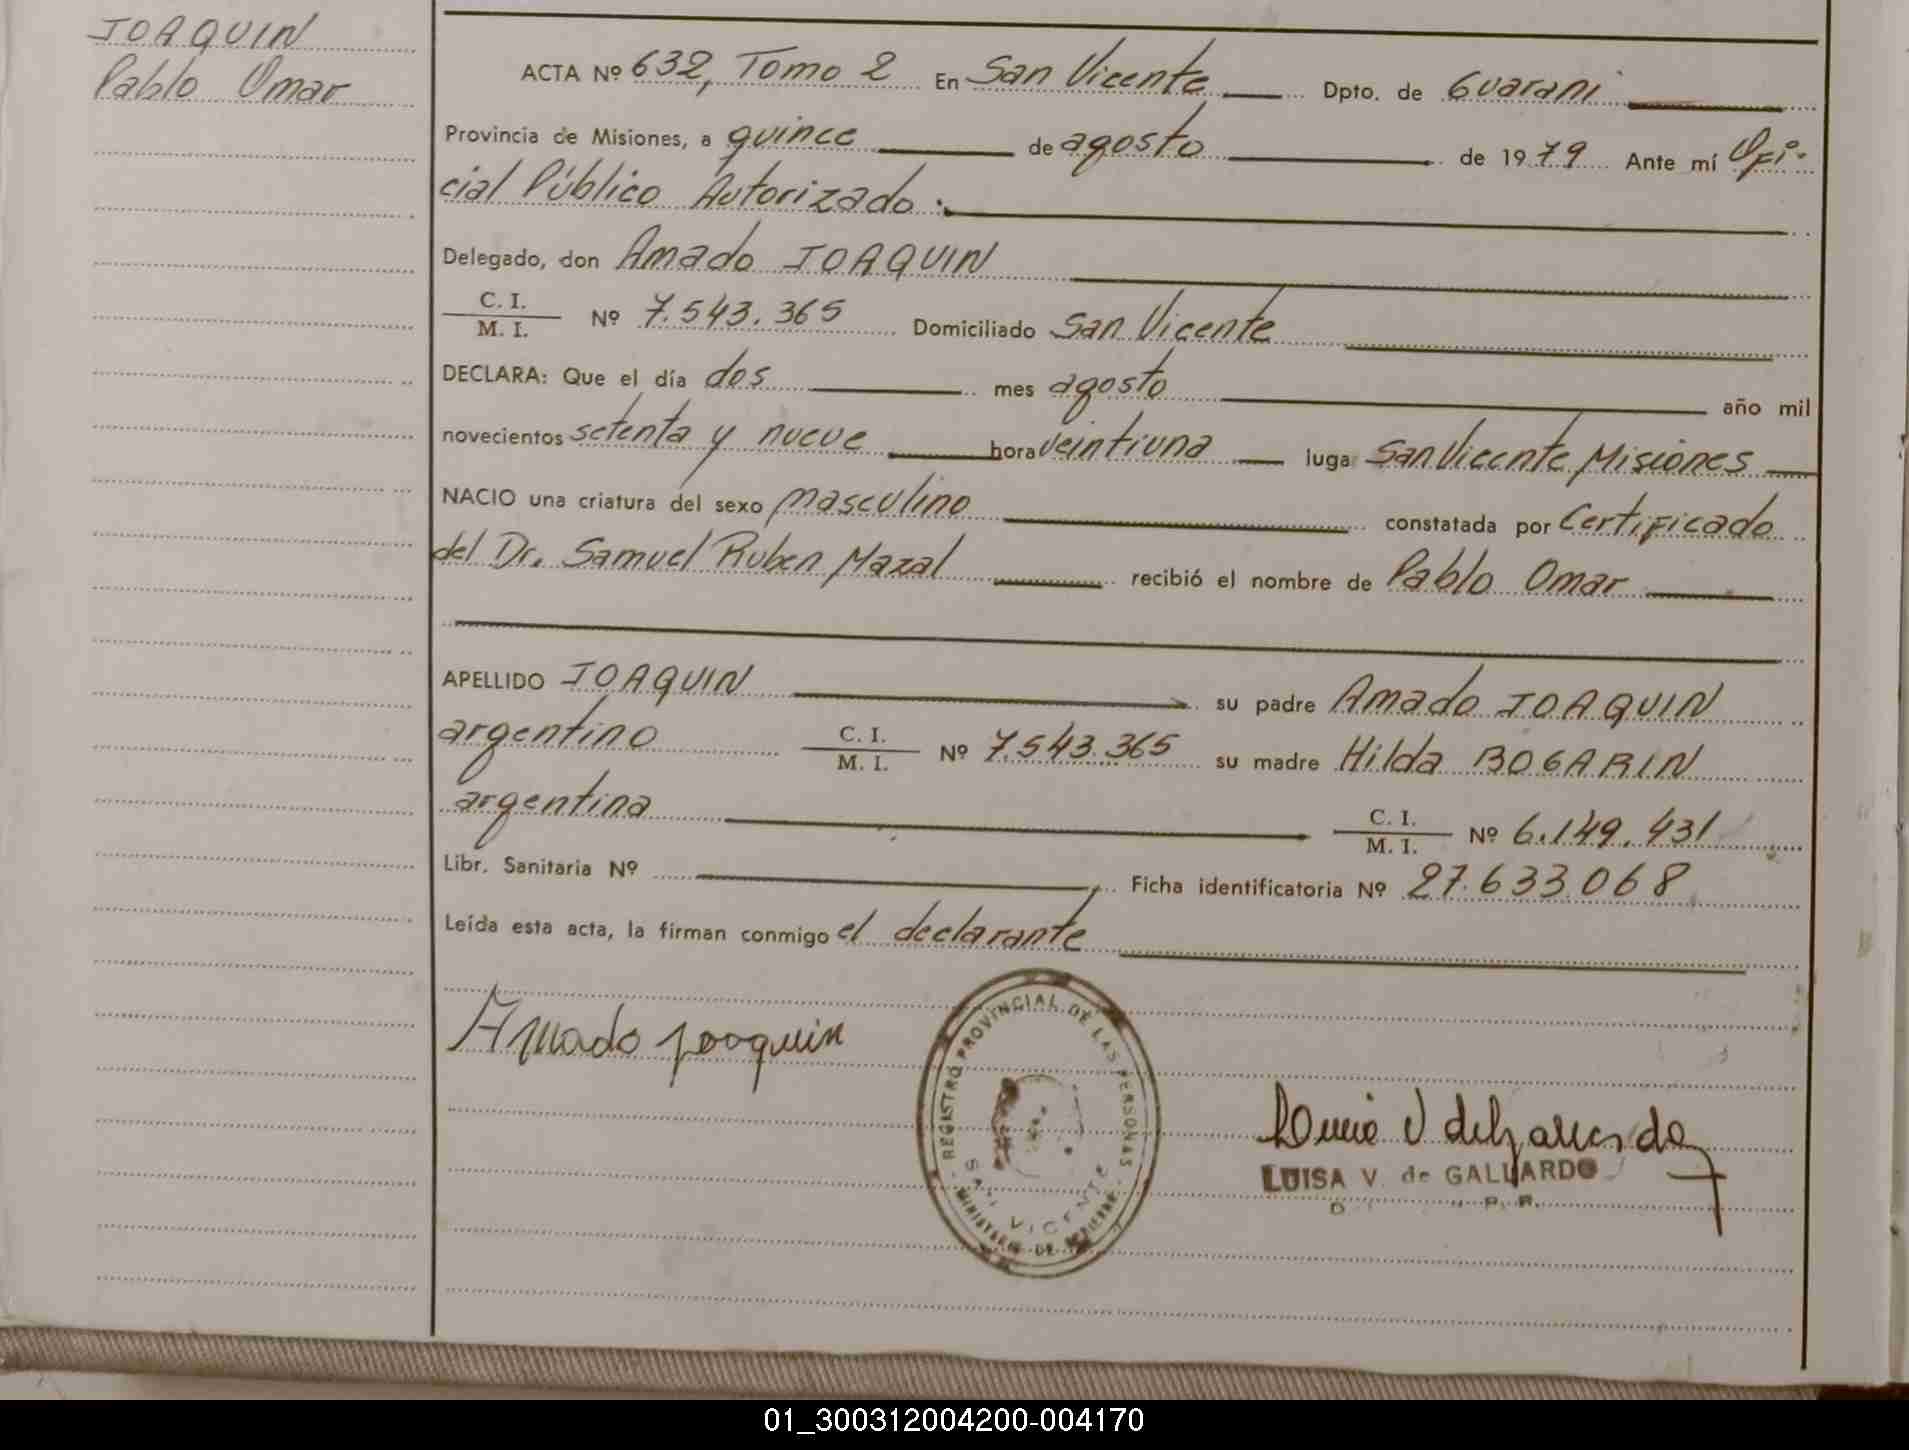 JOAQUIN
Pablo Omar
ACTA Nº 632, Tomo 2 En San Vicente Dpto. de Guarani
Provincia de Misiones, a quince de agosto de 1979 Ante mí Ofi-
cial Público Autorizado.
Delegado, don Amado JOAQUIN
C. I.
M. I. Nº 7.543.365 Domiciliado San Vicente
DECLARA: Que el día dos mes agosto año mil
novecientos setenta y nueve hora veintiuna luga San Vicente Misiones
NACIO una criatura del sexo masculino constatada por Certificado
del Dr. Samuel Ruben Mazal recibió el nombre de Pablo Omar
APELLIDO JOAQUIN su padre Amado JOAQUIN
argentino C. I.
M. I. Nº 7.543.365 su madre Hilda BOGARIN
argentina C. I.
M. I. Nº 6.149.431
Libr. Sanitaria Nº Ficha identificatoria Nº 27.633.068
Leída esta acta, la firman conmigo el declarante
Amado Joaquin
REGISTRO PROVINCIAL DE LAS PERSONAS
SAN VICENTE
MINISTERIO DE GOBIERNO
LUISA V. de GALLARDO
01_300312004200-004170